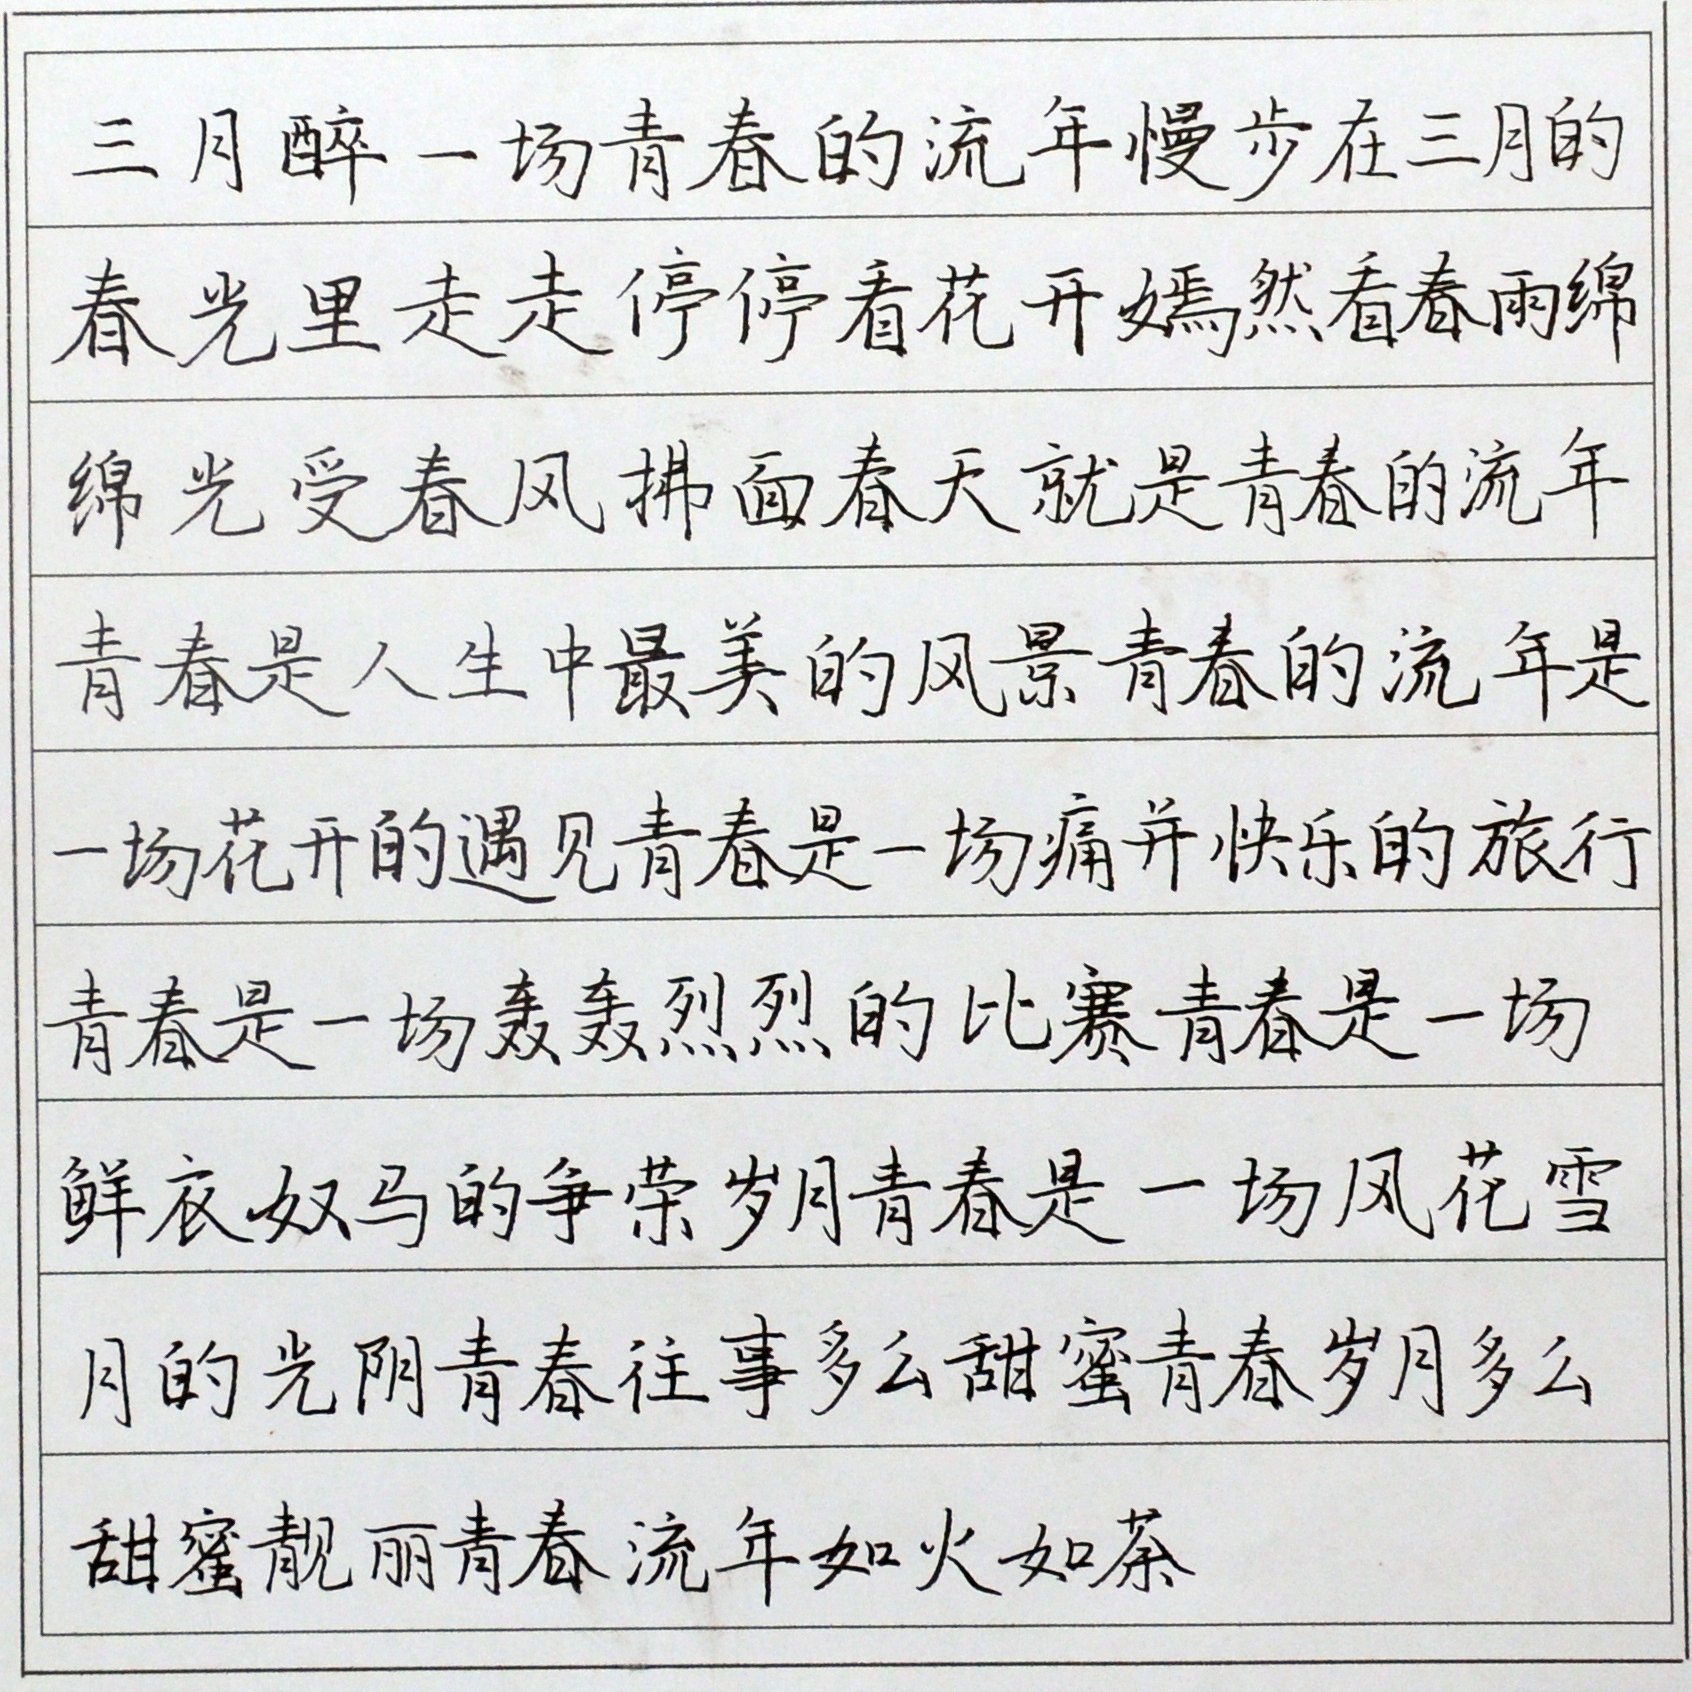 三月醉一场青春的流年慢步在三月的
春光里走走停停看花开嫣然看春雨绵
绵光受春风拂面春天就是青春的流年
青春是人生中最美的风景青春的流年是
一场花开的遇见青春是一场痛并快乐的旅行
青春是一场轰轰烈烈的比赛青春是一场
鲜衣奴马的争荣岁月青春是一场风花雪
月的光阴青春往事多么甜蜜青春岁月多么
甜蜜靓丽青春流年如火如荼